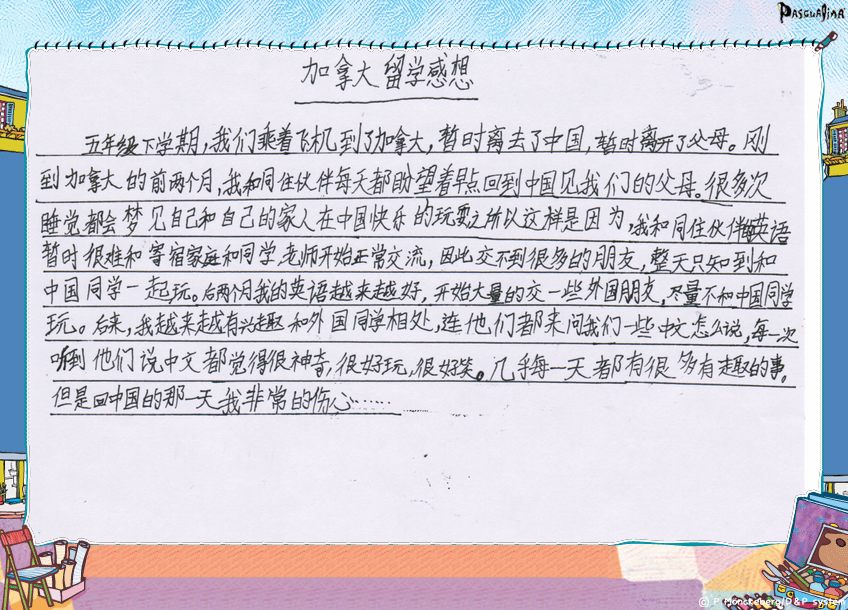 PASQUALINA
加拿大留学感想
五年级下学期，我们乘着飞机到了加拿大，暂时离去了中国，暂时离开了父母。刚
到加拿大的前两个月，我和同住伙伴每天都盼望着早点回到中国见我们的父母。很多次
睡觉都会梦见自己和自己的家人在中国快乐的玩耍之所以这样是因为，我和同住伙伴英语
暂时很难和寄宿家庭和同学，老师开始正常交流，因此交不到很多的朋友，整天只知到和
中国同学一起玩。后两个月我的英语越来越好，开始大量的交一些外国朋友，尽量不和中国同学
玩。后来，我越来越有兴趣和外国同学相处，连他们都来问我们一些中文怎么说，每一次
听到他们说中文都觉得很神奇，很好玩，很好笑。几乎每一天都有很多有趣的事。
但是回中国的那一天我非常的伤心……
© P Moncteberg/D&P System